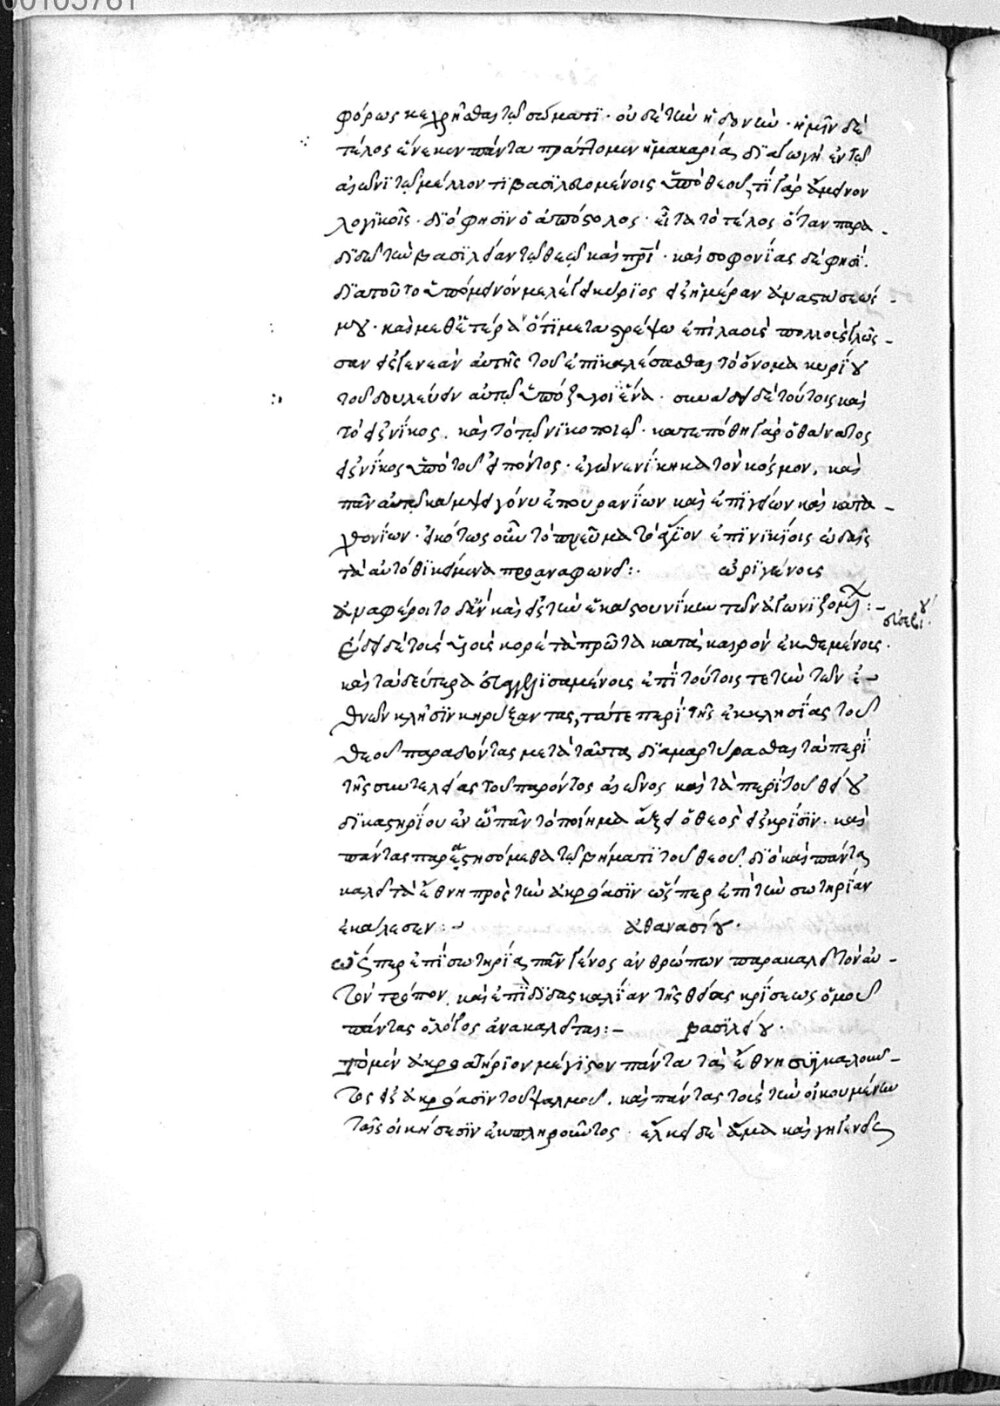 00105781
φόρως κεχρῆσθαι τῷ σώματι · οὐδὲ τὴν ἡδονὴν · ἡμῖν δὲ
τέλος οὗ ἕνεκεν πάντα πράττομεν ἡ μακαρία διαγωγὴ ἐν τῷ
αἰῶνι τῷ μέλλοντι βασιλευομένοις ὑπὸ θεοῦ, τί γὰρ ἄμεινον
λογικοῖς · διό φησιν ὁ ἀπόστολος · εἶτα τὸ τέλος ὅταν παρα-
διδῷ τὴν βασιλείαν τῷ θεῷ καὶ πρὶ · καὶ σοφονίας δέ φησι ·
διατοῦτο ὑπόμεινόν με λέγει κύριος εἰς ἡμέραν ἀναστάσεώς
μου · καὶ μεθ' ἕτερα ὅτι μεταστρέψω ἐπὶ λαοὺς πολλοὺς γλῶσ-
σαν εἰς γενεὰν αὐτῆς τοῦ ἐπικαλεῖσθαι τὸ ὄνομα κυρίου
τοῦ δουλεύειν αὐτῷ ὑπὸ ζυγὸν ἕνα · συνᾴδει δὲ τούτοις καὶ
τὸ εἰς νῖκος · καὶ τὸ τῷ νικοποιῷ · κατεπόθη γὰρ ὁ θάνατος
εἰς νῖκος ὑπὸ τοῦ εἰπόντος · ἐγὼ νενίκηκα τὸν κόσμον, καὶ
πᾶν αὐτῷ κάμψει γόνυ ἐπουρανίων καὶ ἐπιγείων καὶ κατα-
χθονίων · εἰκότως οὖν τὸ πνεῦμα τὸ ἅγιον ἐπινικίοις ᾠδαῖς
τὰ αὐτόθι κείμενα προαναφωνεῖ : · ὠριγένοις
ἀναφέροιτο δ' ἂν καὶ εἰς τὴν ἑκάστου νίκην τῶν ἀγωνιζομέ :-
εὐσεβίου ·
Ἔδει δὲ τοῖς υἱοῖς κορὲ τὰ πρῶτα κατὰ καιρὸν ἐκθεμένοις ·
καὶ τὰ δεύτερα εὐαγγελισαμένοις ἐπὶ τούτοις τε τὴν τῶν ἐ-
θνῶν κλῆσιν κηρύξαντας, τά τε περὶ τῆς ἐκκλησίας τοῦ
θεοῦ παραδόντας μετὰ ταῦτα διαμαρτύρασθαι τὰ περὶ
τῆς συντελείας τοῦ παρόντος αἰῶνος καὶ τὰ περὶ τοῦ θείου
δικαστηρίου ἐν ᾧ πᾶν τὸ ποίημα ἄξει ὁ θεὸς εἰς κρίσιν · καὶ
πάντας παραστησόμεθα τῷ βήματι τοῦ θεοῦ, διὸ καὶ πάντα
καλεῖ τὰ ἔθνη πρὸς τὴν ἀκρόασιν ὥσπερ ἐπὶ τὴν σωτηρίαν
ἐκάλεσεν :- ἀθανασίου ·
ὥσπερ ἐπὶ σωτηρίᾳ πᾶν γένος ἀνθρώπων παρακαλεῖ τὸν αὐ-
τὸν τρόπον, καὶ ἐπὶ διδασκαλίαν τῆς θείας κρίσεως ὁμοῦ
πάντας ὁ λόγος ἀνακαλεῖται :- βασιλείου ·
τὸ μὲν ἀκροατήριον μέγιστον πάντα τὰ ἔθνη συγκαλοῦν-
τος εἰς ἀκρόασιν τοῦ ψαλμοῦ, καὶ πάντας τοὺς τὴν οἰκουμένην
ταῖς οἰκήσεσιν ἐκπληροῦντος · εἵλκει δὲ ἅμα καὶ γηγενεῖς